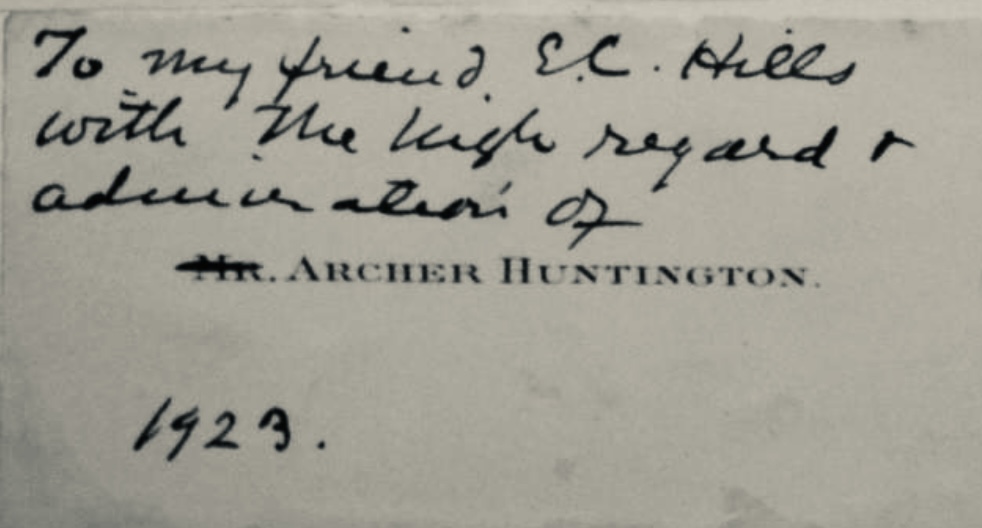 To my friend E.C. Hills
with the high regard &
admiration of
Mr. Archer Huntington.
1923.